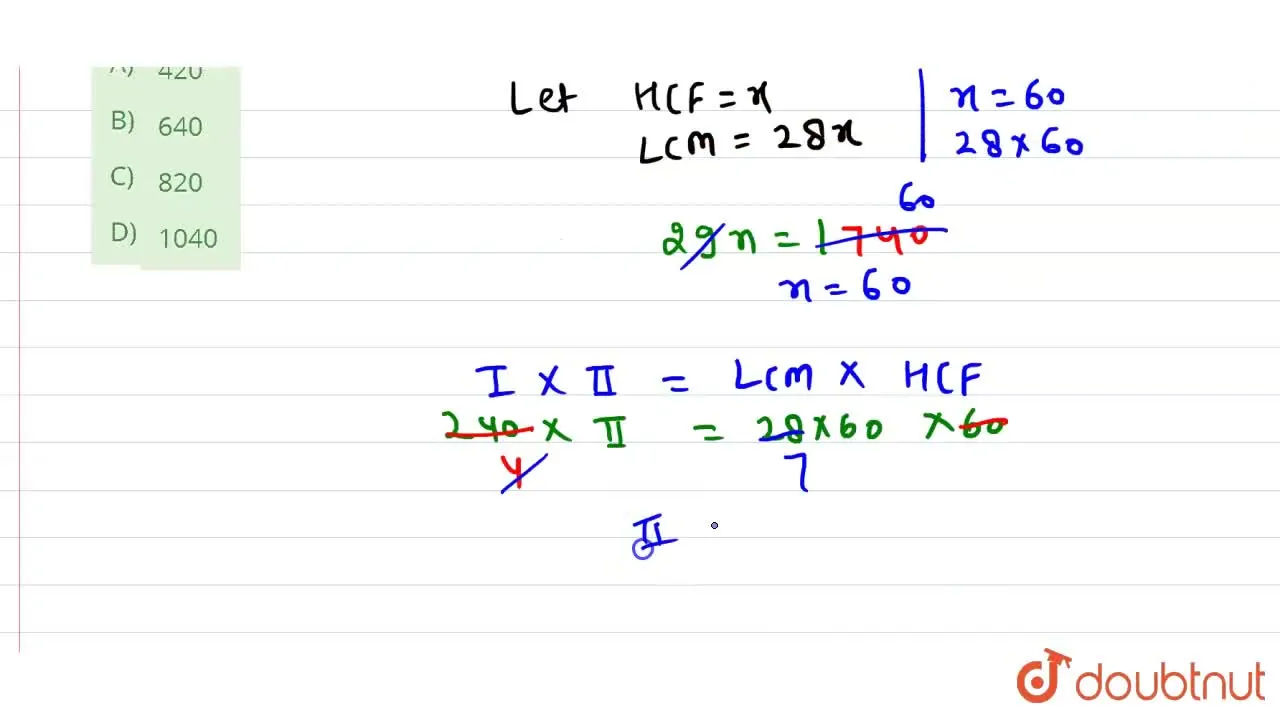 A) 420
B) 640
C) 820
D) 1040
Let HCF = x
LCM = 28x
x = 60
28 × 60
60
29 x = 1740
x = 60
I × II = LCM × HCF
240 × II = 28 × 60 × 60
4 7
II
doubtnut